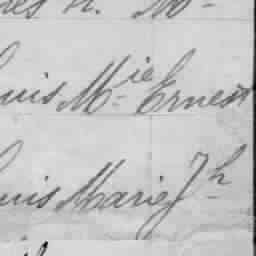 uis Mie Ernest
uis Marie Jh